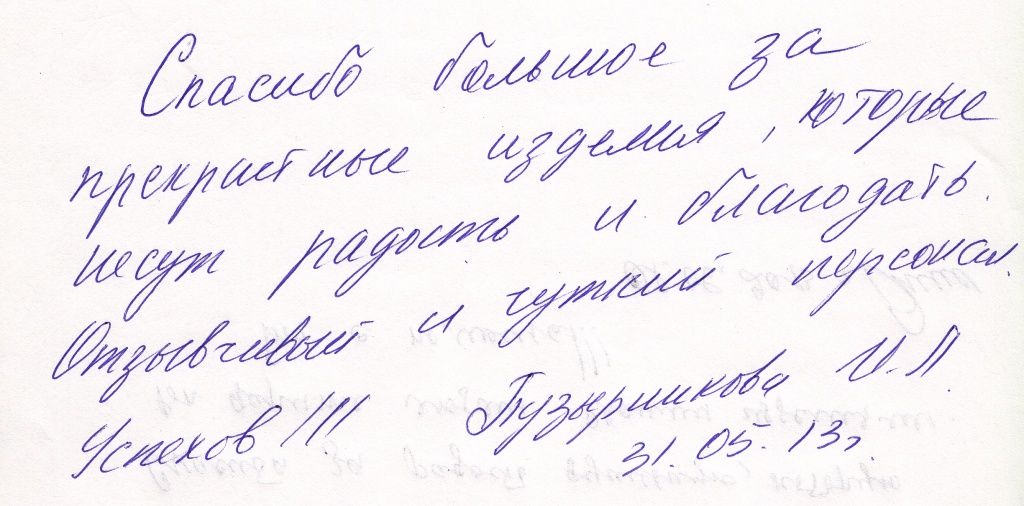 Спасибо большое за
прекрастные изделия, которые
несут радость и благодать.
Отзывчивый и чуткий персонал.
Успехов !!! Пузырникова И.Л.
31.05.13г.